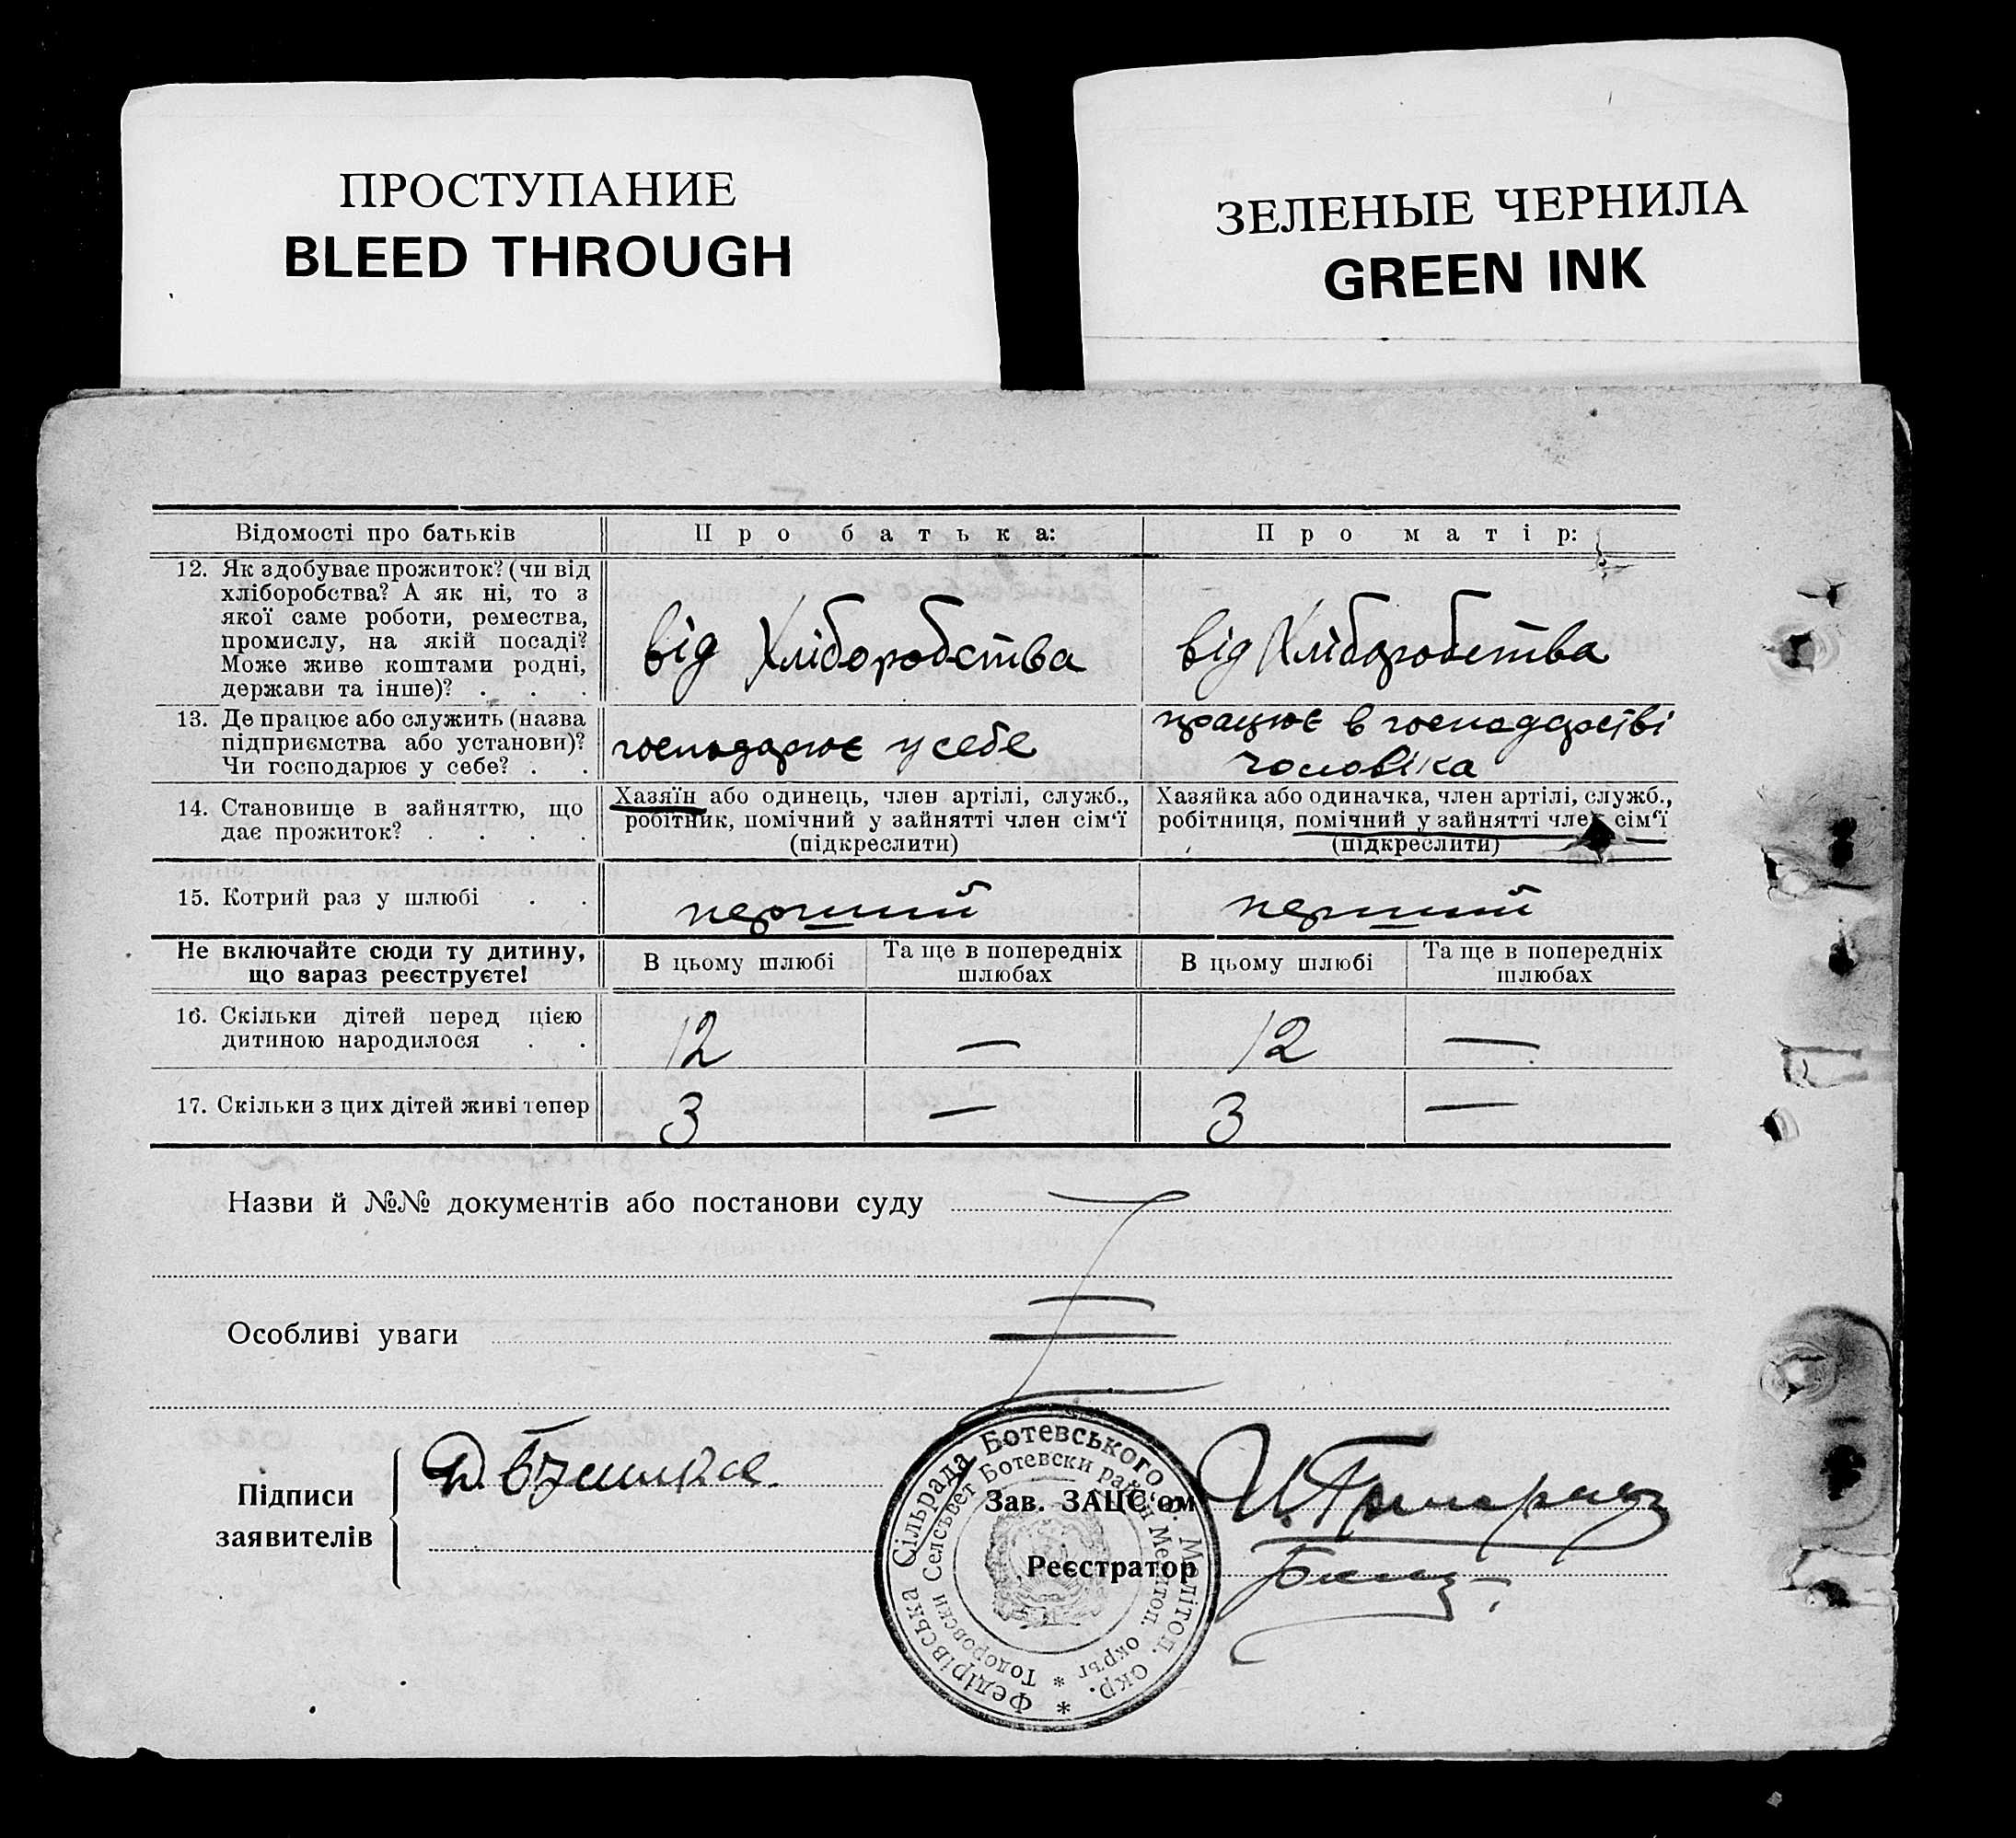 ПРОСТУПАНИЕ
BLEED THROUGH
ЗЕЛЕНЫЕ ЧЕРНИЛА
GREEN INK
Відомості про батьків
Про батька:
Про матір:
12. Як здобуває прожиток? (чи від
хліборобства? А як ні, то з
якої саме роботи, ремества,
промислу, на якій посаді?
Може живе коштами родні,
держави та інше)? . . .
від Хліборобства
від Хліборобства
13. Де працює або служить (назва
підприємства або установи)?
Чи господарює у себе? . .
господарює у себе
працює в господарстві
чоловіка
14. Становище в зайняттю, що
дає прожиток? . . . .
Хазяїн або одинець, член артілі, служб.,
робітник, помічний у зайнятті член сім'ї
(підкреслити)
Хазяйка або одиначка, член артілі, служб.,
робітниця, помічний у зайнятті член сім'ї
(підкреслити)
15. Котрий раз у шлюбі . .
перший
перший
Не включайте сюди ту дитину,
що зараз реєструєте!
В цьому шлюбі
Та ще в попередніх
шлюбах
В цьому шлюбі
Та ще в попередніх
шлюбах
16. Скільки дітей перед цією
дитиною народилося . .
12
—
12
—
17. Скільки з цих дітей живі тепер
3
—
3
—
Назви й №№ документів або постанови суду
Особливі уваги
Підписи
заявителів
Зав. ЗАЦС'ом
Реєстратор
Федірівська Сільрада Ботевського р. Мелітоп. окр. *
Тодоровски Селсъвет Ботевски район Мелитоп. окръг *